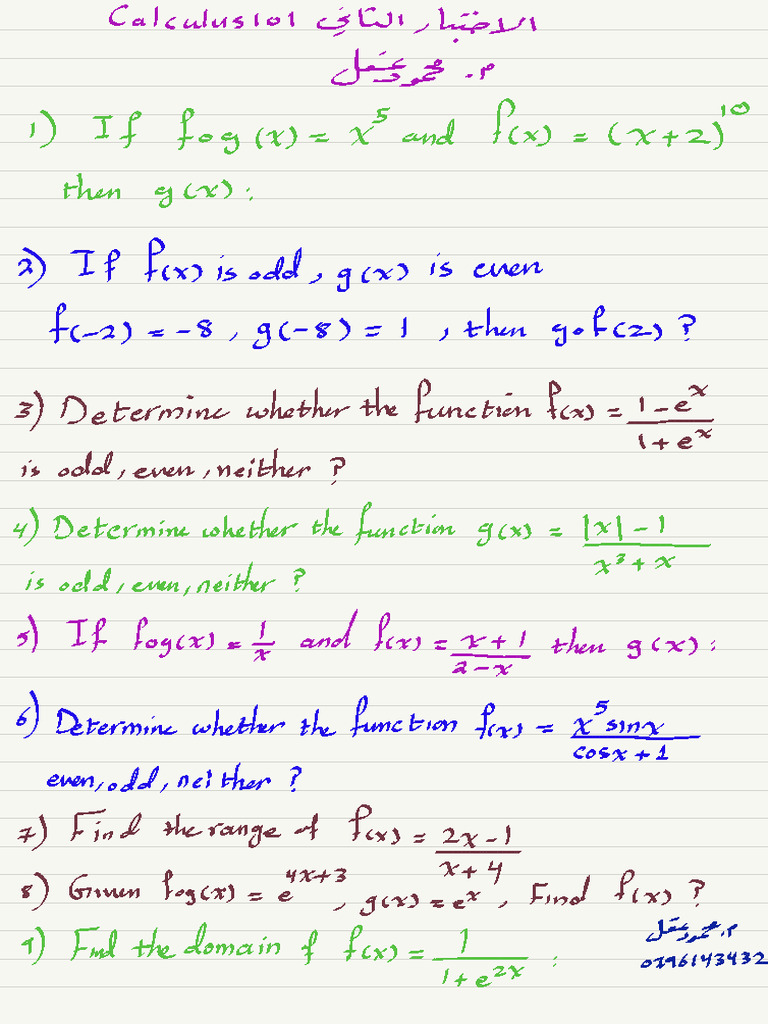 Calculus101 الاختبار الثاني
م. محمود عقل
1) If fog(x) = x⁵ and f(x) = (x+2)¹⁰
then g(x):
2) If f(x) is odd, g(x) is even
f(-2) = -8, g(-8) = 1, then gof(2)?
3) Determine whether the function f(x) = (1-eˣ)/(1+eˣ)
is odd, even, neither?
4) Determine whether the function g(x) = (|x|-1)/(x³+x)
is odd, even, neither?
5) If fog(x) = 1/x and f(x) = (x+1)/(2-x) then g(x):
6) Determine whether the function f(x) = (x⁵sinx)/(cosx+1)
even, odd, neither?
7) Find the range of f(x) = (2x-1)/(x+4)
8) Given fog(x) = e⁴ˣ⁺³, g(x) = eˣ, Find f(x)?
9) Find the domain of f(x) = 1/(1+e²ˣ) :
م. محمود عقل
0796143432